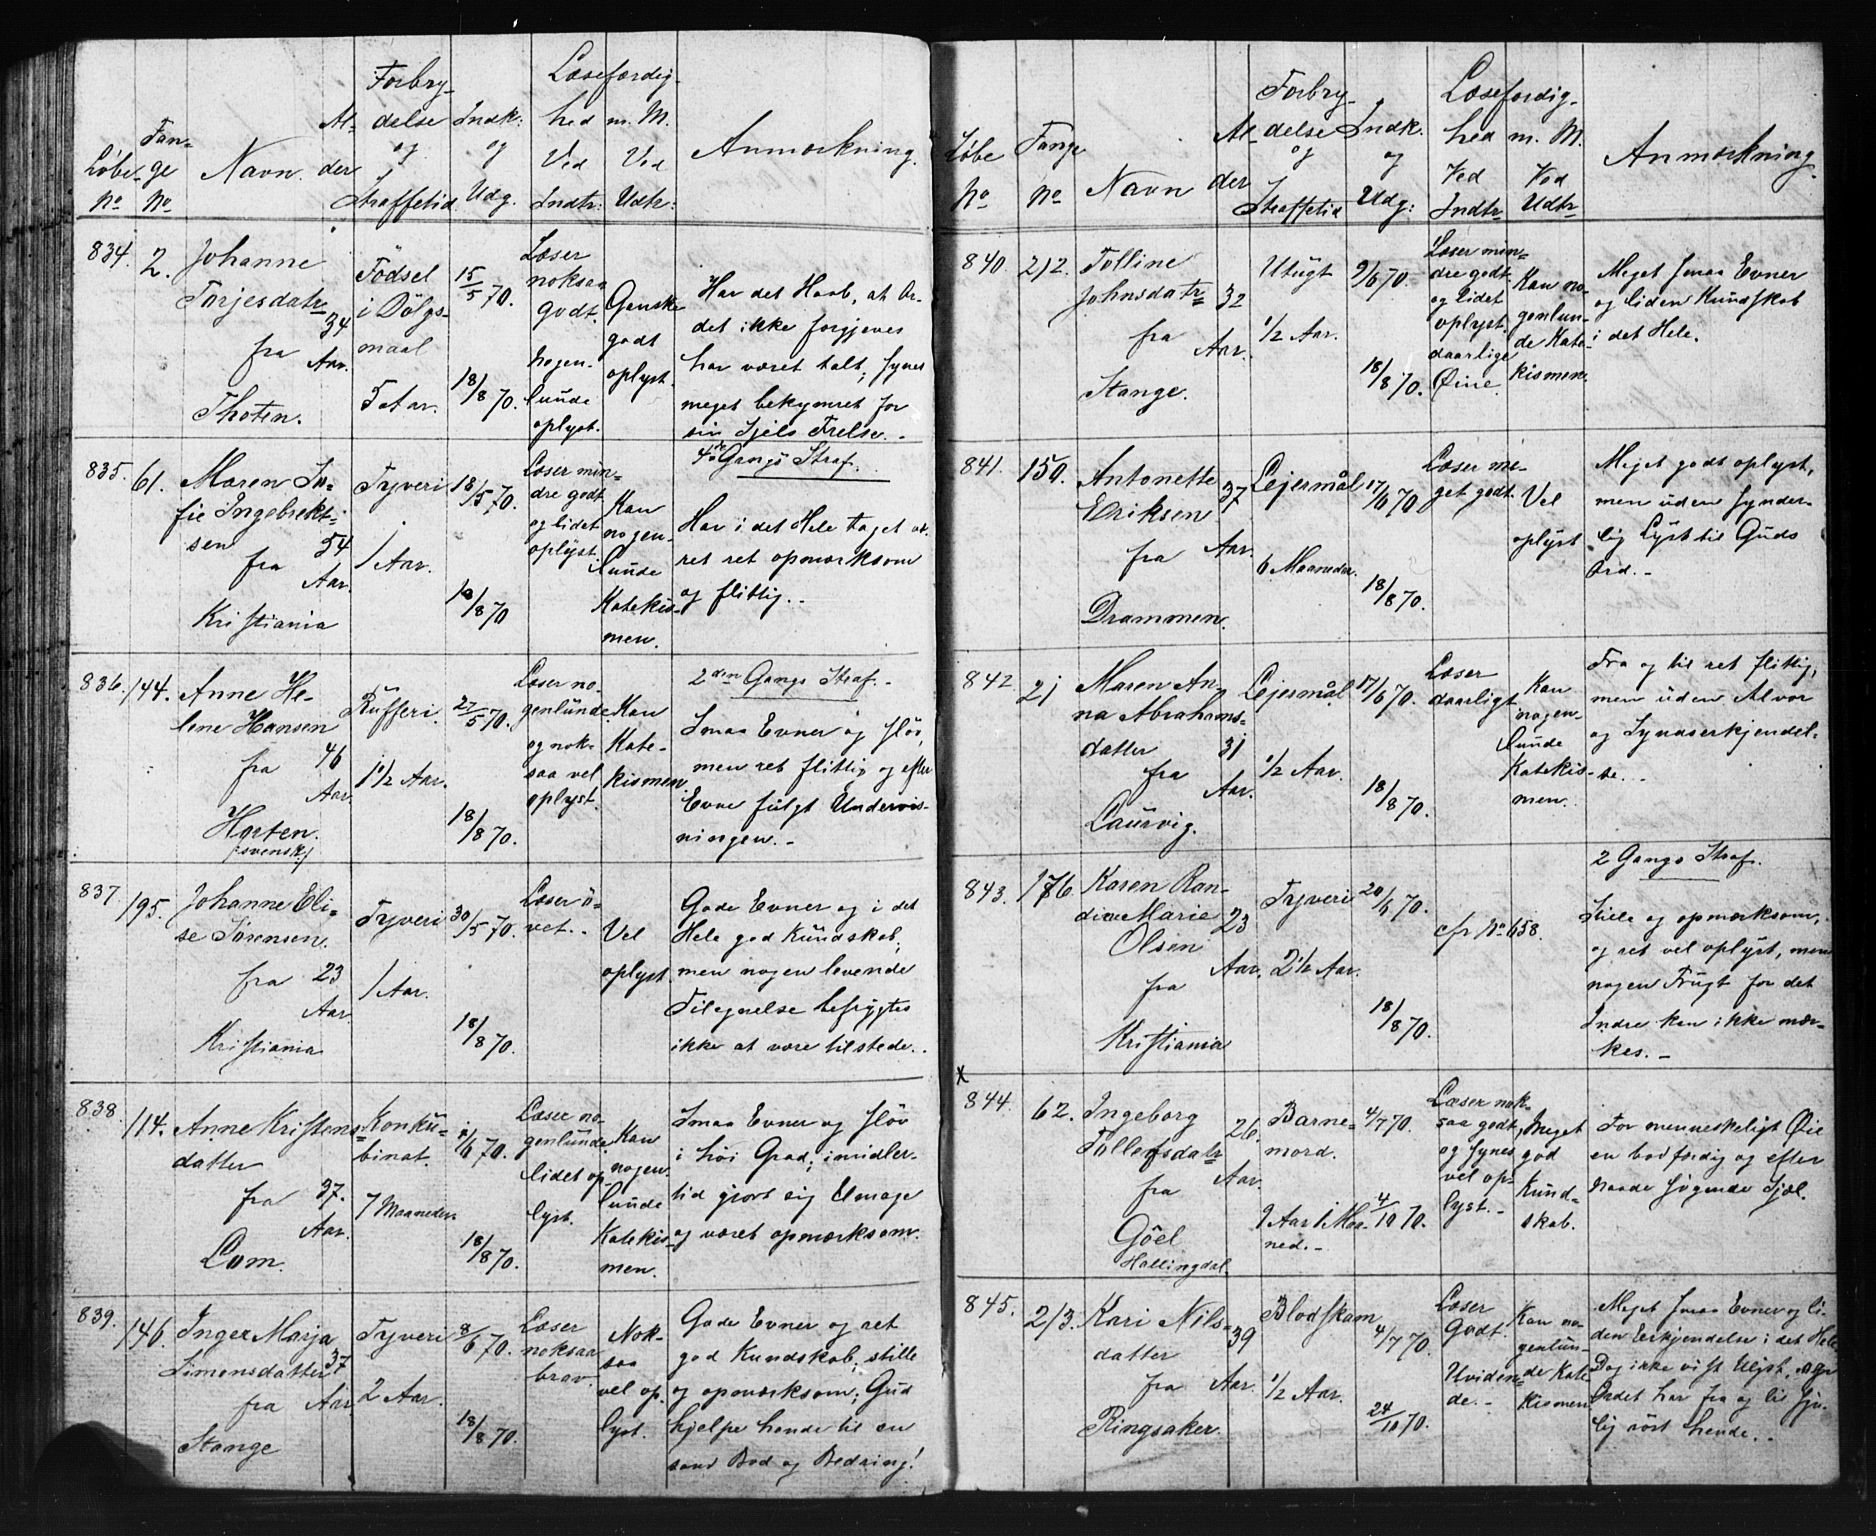 Løbe No | Fange No | Navn. | Alder | Forbrydelse og Straffetid | Indk: og Udg. | Læsefærdighed m. M. Ved Indtr: | Ved Udtr: | Anmærkning.
834. | 2. | Johanne Torjesdatr fra Thoten. | 34 Aar. | Födsel i Dölgsmaal 5 Aar. | 15/5 70. 18/8 70. | Læser noksaa godt. nogenlunde oplyst. | Ganske godt oplyst. | Har det Haab, at Ordet ikke forgjeves har været talt; synes meget bekymret for sin Sjels Frelse. -
835. | 61. | Maren Sofie Ingebrektsen fra Kristiania | 54 Aar. | Tyveri 1 Aar. | 18/5 70. 18/8 70 | Læser mindre godt og lidet oplyst. | Kan nogenlunde Katekismen. | 4de Gangs Straf. Har i det Hele taget været ret opmærksom og flittig. -
836. | 144. | Anne Helene Hansen fra Horten. (svensk) | 46 Aar. | Rufferi. 1 1/2 Aar. | 27/5 70. 18/8 70. | Læser nogenlunde og noksaa vel oplyst. | Kan Katekismen | 2den Gangs Straf. - Smaa Evner og sløv, men ret flittig og efter Evne fulgt Undervisningen. -
837. | 195. | Johanne Elise Sörensen. fra Kristiania | 23 Aar. | Tyveri 1 Aar. | 30/5 70. 18/8 70. | Læser övet. - | Vel oplyst. | Gode Evner og i det Hele god Kundskab; men nogen levende Tilegnelse befrygtes ikke at være tilstede. -
838. | 114. | Anne Kristensdatter fra Lom. | 37. Aar. | Konkubinat. 7 Maaneder. | 1/6 70. 18/8 70. | Læser nogenlunde. lidet oplyst. | Kan nogenlunde Katekismen. | Smaa Evner og sløv i höi Grad; imidlertid gjort sig Umage og været opmærksom.
839. | 146. | Inger Marja Simonsdatter fra Stange | 37 Aar | Tyveri 2 Aar. | 8/6 70. 18/8 70. | Læser noksaa brav. | Noksaa vel oplyst. | Gode Evner og ret god Kundskab; stille og opmærksom; Gud hjelpe hende til en sand Bod og Bedring!
Løbe No | Fange No | Navn | Alder | Forbrydelse og Straffetid | Indk. og Udg: | Læsefærdighed m. M. Ved Indtr | Ved Udtr | Anmærkning.
840. | 212. | Tolline Johnsdatr fra Stange. | 32 Aar. | Utugt 1/2 Aar. | 9/6 70. 18/8 70. | Læser mindre godt. og lidet oplyst. daarlige Øine. | Kan nogenlunde Katekismen. | Meget smaa Evner og liden Kundskab i det Hele.
841. | 150. | Antonette Eriksen fra Drammen. | 37 Aar. | Lejermål 6 Maaneder. | 17/6 70 18/8 70. | Læser meget godt. | Vel oplyst | Meget godt oplyst, men uden synderlig Lyst til Guds Ord. -
842 | 21 | Maren Anna Abrahamsdatter fra Laurvig. | 31 Aar. | Lejermål 1/2 Aar. | 17/6 70. 18/8 70. | Læser daarligt | Kan nogenlunde Katekismen. | Fra og til ret flittig, men uden Alvor og Syndserkjendelse. -
843. | 176. | Karen Randine Marie Olsen fra Kristiania | 23 Aar. | Tyveri 2 1/2 Aar. | 20/6 70. 18/8 70. | cfr No 658. | 2 Gangs Straf. Stille og opmærksom, og ret vel oplyst, men nogen Frugt for det Indre kan ikke mærkes. -
x 844. | 62. | Ingeborg Tollefsdatr fra Göel Hallingdal. | 26. Aar. | Barnemord. 9 Aar 1 Maaned. - | 4/7 70. 4/10 70. | Læser noksaa godt, og synes vel oplyst. - | Meget god Kundskab. | For menneskeligt Øie en bodfærdig og efter Naade søgende Sjæl.
845. | 213. | Kari Nilsdatter fra Ringsaker. | 39 Aar. | Blodskam 1/2 Aar. | 4/7 70. 24/10 70. | Læser Godt. Uvidende. - | Kan nogenlunde Katekismen | Meget smaa Evner og liden Erkjendelse i det Hele. Dog ikke vist Ulyst, og Ordet har fra og til synlig rört hende. -